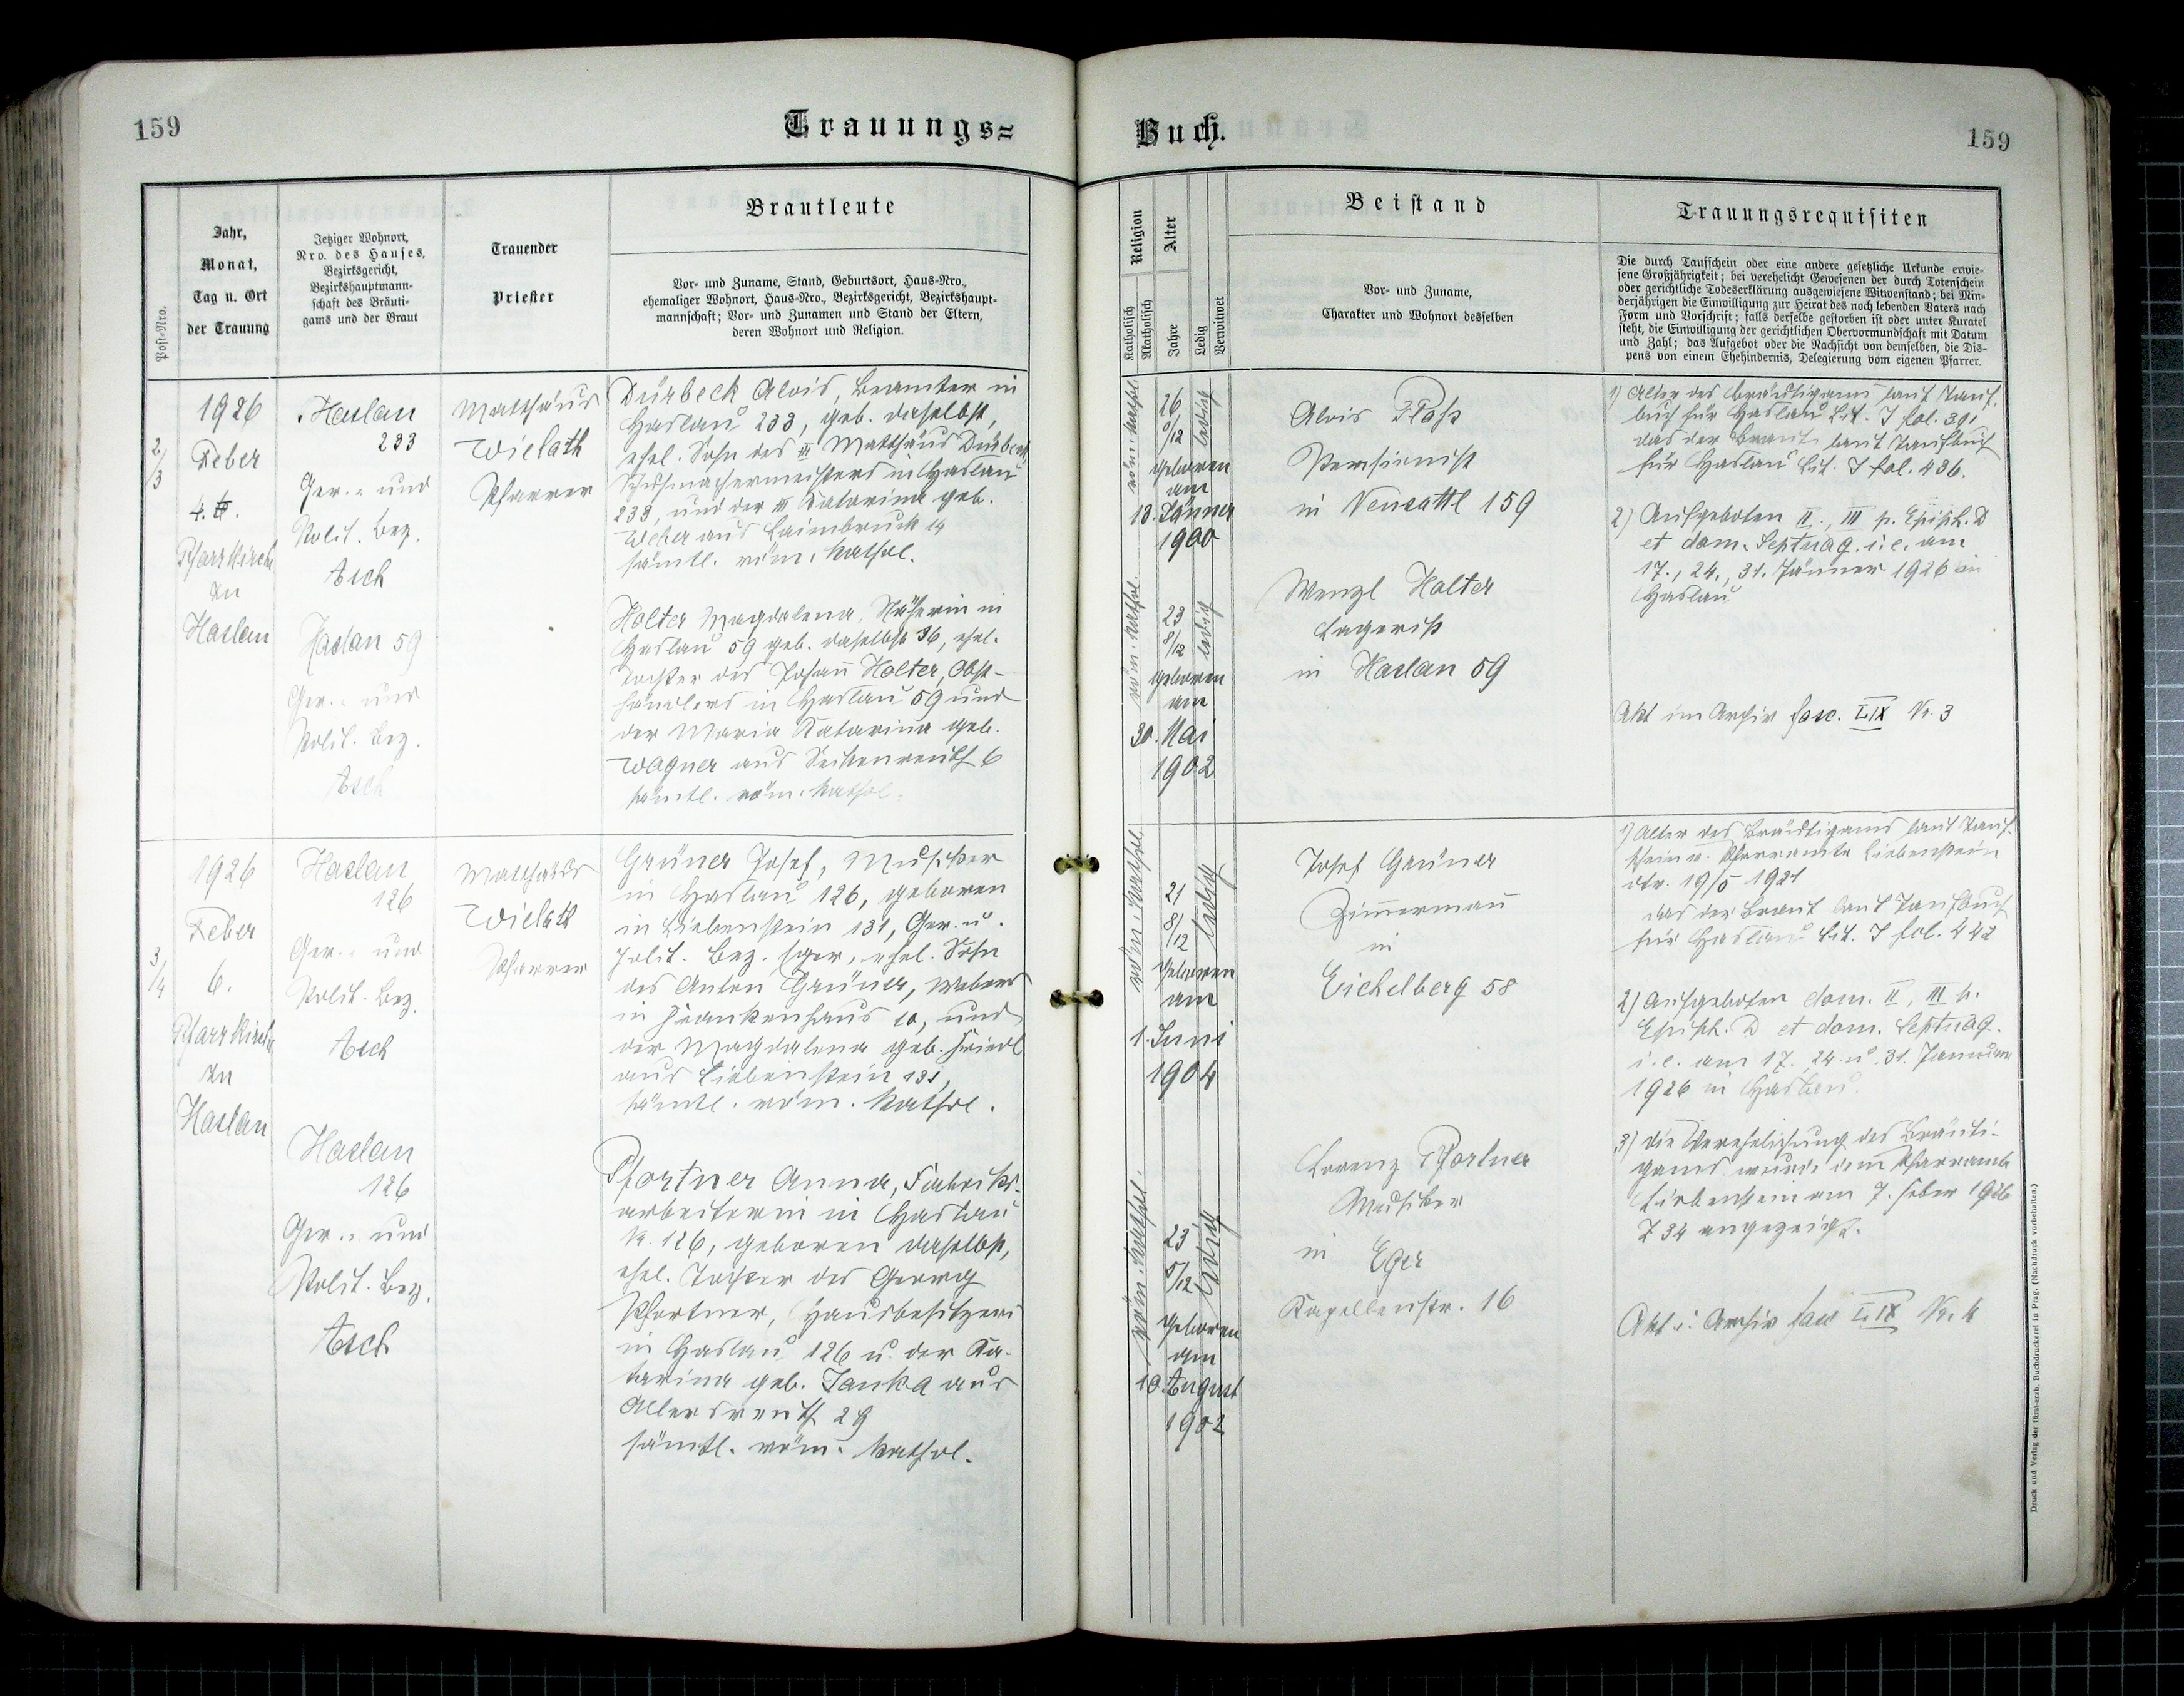 159
Trauungs=
Buch.
159
Post-Nro.
Jahr,
Monat,
Tag u. Ort
der Trauung
Jetziger Wohnort,
Nro. des Hauses,
Bezirksgericht,
Bezirkshauptmann-
schaft des Bräuti-
gams und der Braut
Trauender
Priester
Brautleute
Vor- und Zuname, Stand, Geburtsort, Haus-Nro.,
ehemaliger Wohnort, Haus-Nro., Bezirksgericht, Bezirkshaupt-
mannschaft; Vor- und Zunamen und Stand der Eltern,
deren Wohnort und Religion.
Religion
Katholisch
Akatholisch
Alter
Jahre
Ledig
Verwitwet
Beistand
Vor- und Zuname,
Charakter und Wohnort desselben
Trauungsrequisiten
Die durch Taufschein oder eine andere gesetzliche Urkunde erwie-
sene Großjährigkeit; bei verehelicht Gewesenen der durch Totenschein
oder gerichtliche Todeserklärung ausgewiesene Witwenstand; bei Min-
derjährigen die Einwilligung zur Heirat des noch lebenden Vaters nach
Form und Vorschrift; falls derselbe gestorben ist oder unter Kuratel
steht, die Einwilligung der gerichtlichen Obervormundschaft mit Datum
und Zahl; das Aufgebot oder die Nachsicht von demselben, die Dis-
pens von einem Ehehindernis, Delegierung vom eigenen Pfarrer.
2/3
1926
Feber
4.
Pfarrkirche
zu
Haslau
Haslau
233
Ger.= und
Polit. Bez.
Asch
Haslau 59
Ger.= und
Polit. Bez.
Asch
Matthäus
Wielath
Pfarrer
Dürbeck Alois, Beamter in
Haslau 233, geb. daselbst,
ehel. Sohn des Matthäus Dürbeck,
Schuhmachermeisters in Haslau
233, und der Katarina geb.
Weber aus Laimbruck 14
sämtl. röm. kathol.
Holter Magdalena, Näherin in
Haslau 59 geb. daselbst 36, ehel.
Tochter des Johann Holter, Obst-
händlers in Haslau 59 und
der Maria Katarina geb.
Wagner aus Seichenreuth 6
sämtl. röm. kathol.
röm. kathol.
26
0/12
ledig
geboren
am
13. Jänner
1900
röm. kathol.
23
8/12
ledig
geboren
am
30. Mai
1902
Alois Ploß
Pensionist
in Neusattl 159
Wenzl Holter
Lagerist
in Haslau 59
1) Alter des Bräutigams laut Tauf-
buch für Haslau Lit. J fol. 391
das der Braut laut Taufbuch
für Haslau Lit. J fol. 436.
2) Aufgeboten II., III p. Epiph. D
et dom. Septuag. i.e. am
17., 24., 31. Jänner 1926 in
Haslau
Akt im Archiv fasc. LIX Nr. 3
3/4
1926
Feber
6.
Pfarrkirche
zu
Haslau
Haslau
126
Ger.= und
Polit. Bez.
Asch
Haslau
126
Ger.= und
Polit. Bez.
Asch
Matthäus
Wielath
Pfarrer
Grüner Josef, Musiker
in Haslau 126, geboren
in Liebenstein 131, Ger. u.
polit. Bez. Eger, ehel. Sohn
des Anton Grüner, Webers
in Frankenhaus 10, und
der Magdalena geb. Friedl
aus Liebenstein 131,
sämtl. röm. kathol.
Pfortner Anna, Fabriks-
arbeiterin in Haslau
Nr. 126, geboren daselbst,
ehel. Tochter des Georg
Pfortner, Hausbesitzers
in Haslau 126 u. der Ka-
tarina geb. Janka aus
Altersreuth 29
sämtl. röm. kathol.
röm. kathol.
21
8/12
ledig
geboren
am
1. Juni
1904
röm. kathol.
23
5/12
ledig
geboren
am
10. August
1902
Josef Grüner
Zimmermann
in
Eichelberg 58
Lorenz Pfortner
Musiker
in Eger
Kapellenstr. 16
1) Alter des Bräutigams laut Tauf-
schein v. Pfarramte Liebenstein
dto. 19/5 1921
das der Braut laut Taufbuch
für Haslau Lit. J fol. 442
2) Aufgeboten dom. II, III p.
Epiph. D et dom. Septuag.
i.e. am 17., 24. u. 31. Januar
1926 in Haslau.
3) die Verehelichung des Bräuti-
gams wurde dem Pfarramte
Liebenstein am 7. Feber 1926
Z 34 angezeigt.
Akt i. Archiv fasc LIX Nr. 4
Druck und Verlag der fürst-erzb. Buchdruckerei in Prag. (Nachdruck vorbehalten.)